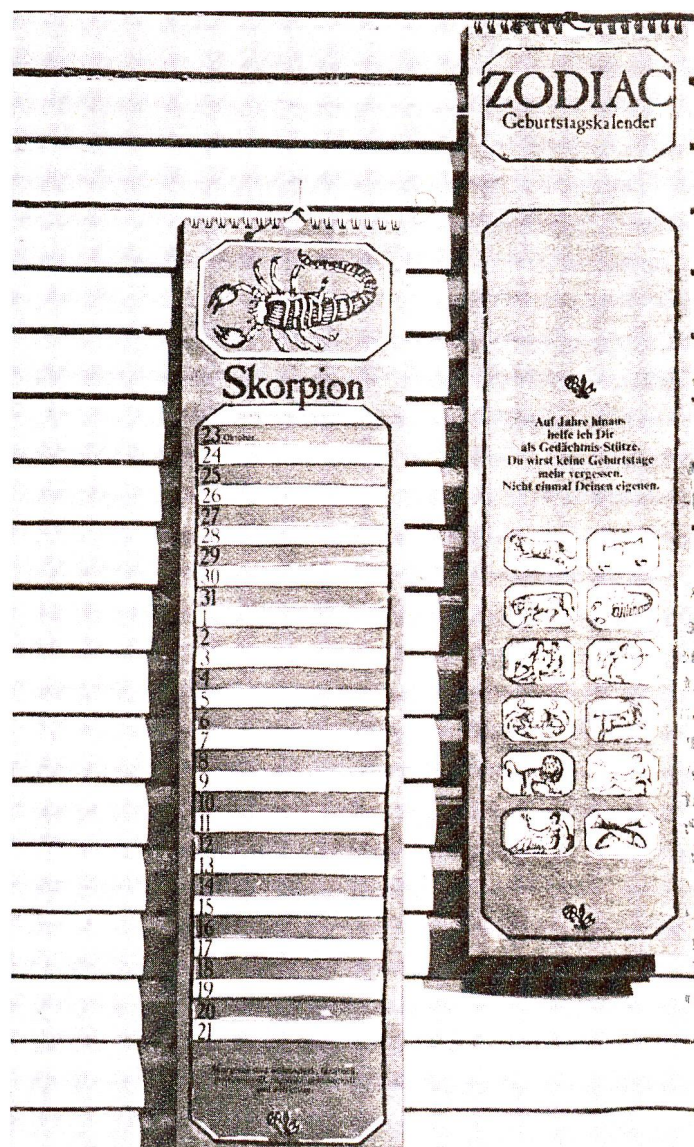 ZODIAC
Geburtstagskalender
Auf Jahre hinaus
helfe ich Dir
als Gedächtnis-Stütze.
Du wirst keine Geburtstage
mehr vergessen.
Nicht einmal Deinen eigenen.
Skorpion
23 Oktober
24
25
26
27
28
29
30
31
1
2
3
4
5
6
7
8
9
10
11
12
13
14
15
16
17
18
19
20
21